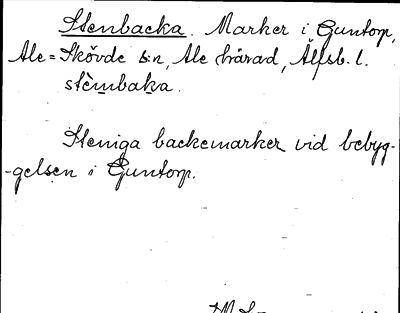 Stenbacka. Marker i Guntorp,
Ale-Skövde s:n, Ale härad, Älfsb. l.
stèmbaka.
Steniga backemarker vid bebyg-
-gelsen i Guntorp.